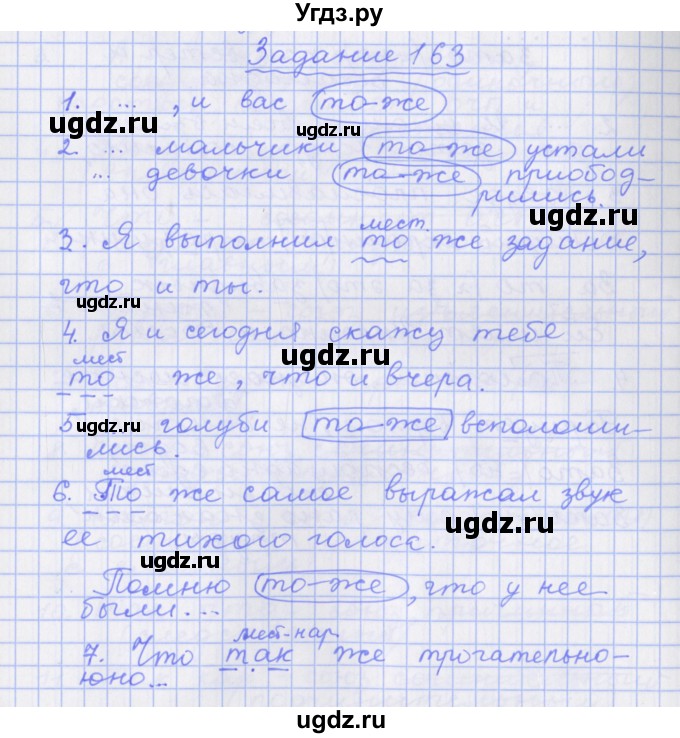 Угдз.ру
Задание 163
1. ... , и вас то-же
2. ... мальчики то-же устали
... девочки то-же приобод-
рились.
мест.
3. Я выполнил то же задание,
что и ты.
4. Я и сегодня скажу тебе
мест
то же, что и вчера.
5. голуби то-же всполоши-
лись.
мест
6. То же самое выражал звук
ее тихого голоса.
Помню то-же, что у нее
были...
мест-нар.
7. Что так же трогательно-
юно...
ugdz.ru
ugdz.ru
ugdz.ru
ugdz.ru
ugdz.ru
ugdz.ru
ugdz.ru
ugdz.ru
ugdz.ru
ugdz.ru
ugdz.ru
ugdz.ru
ugdz.ru